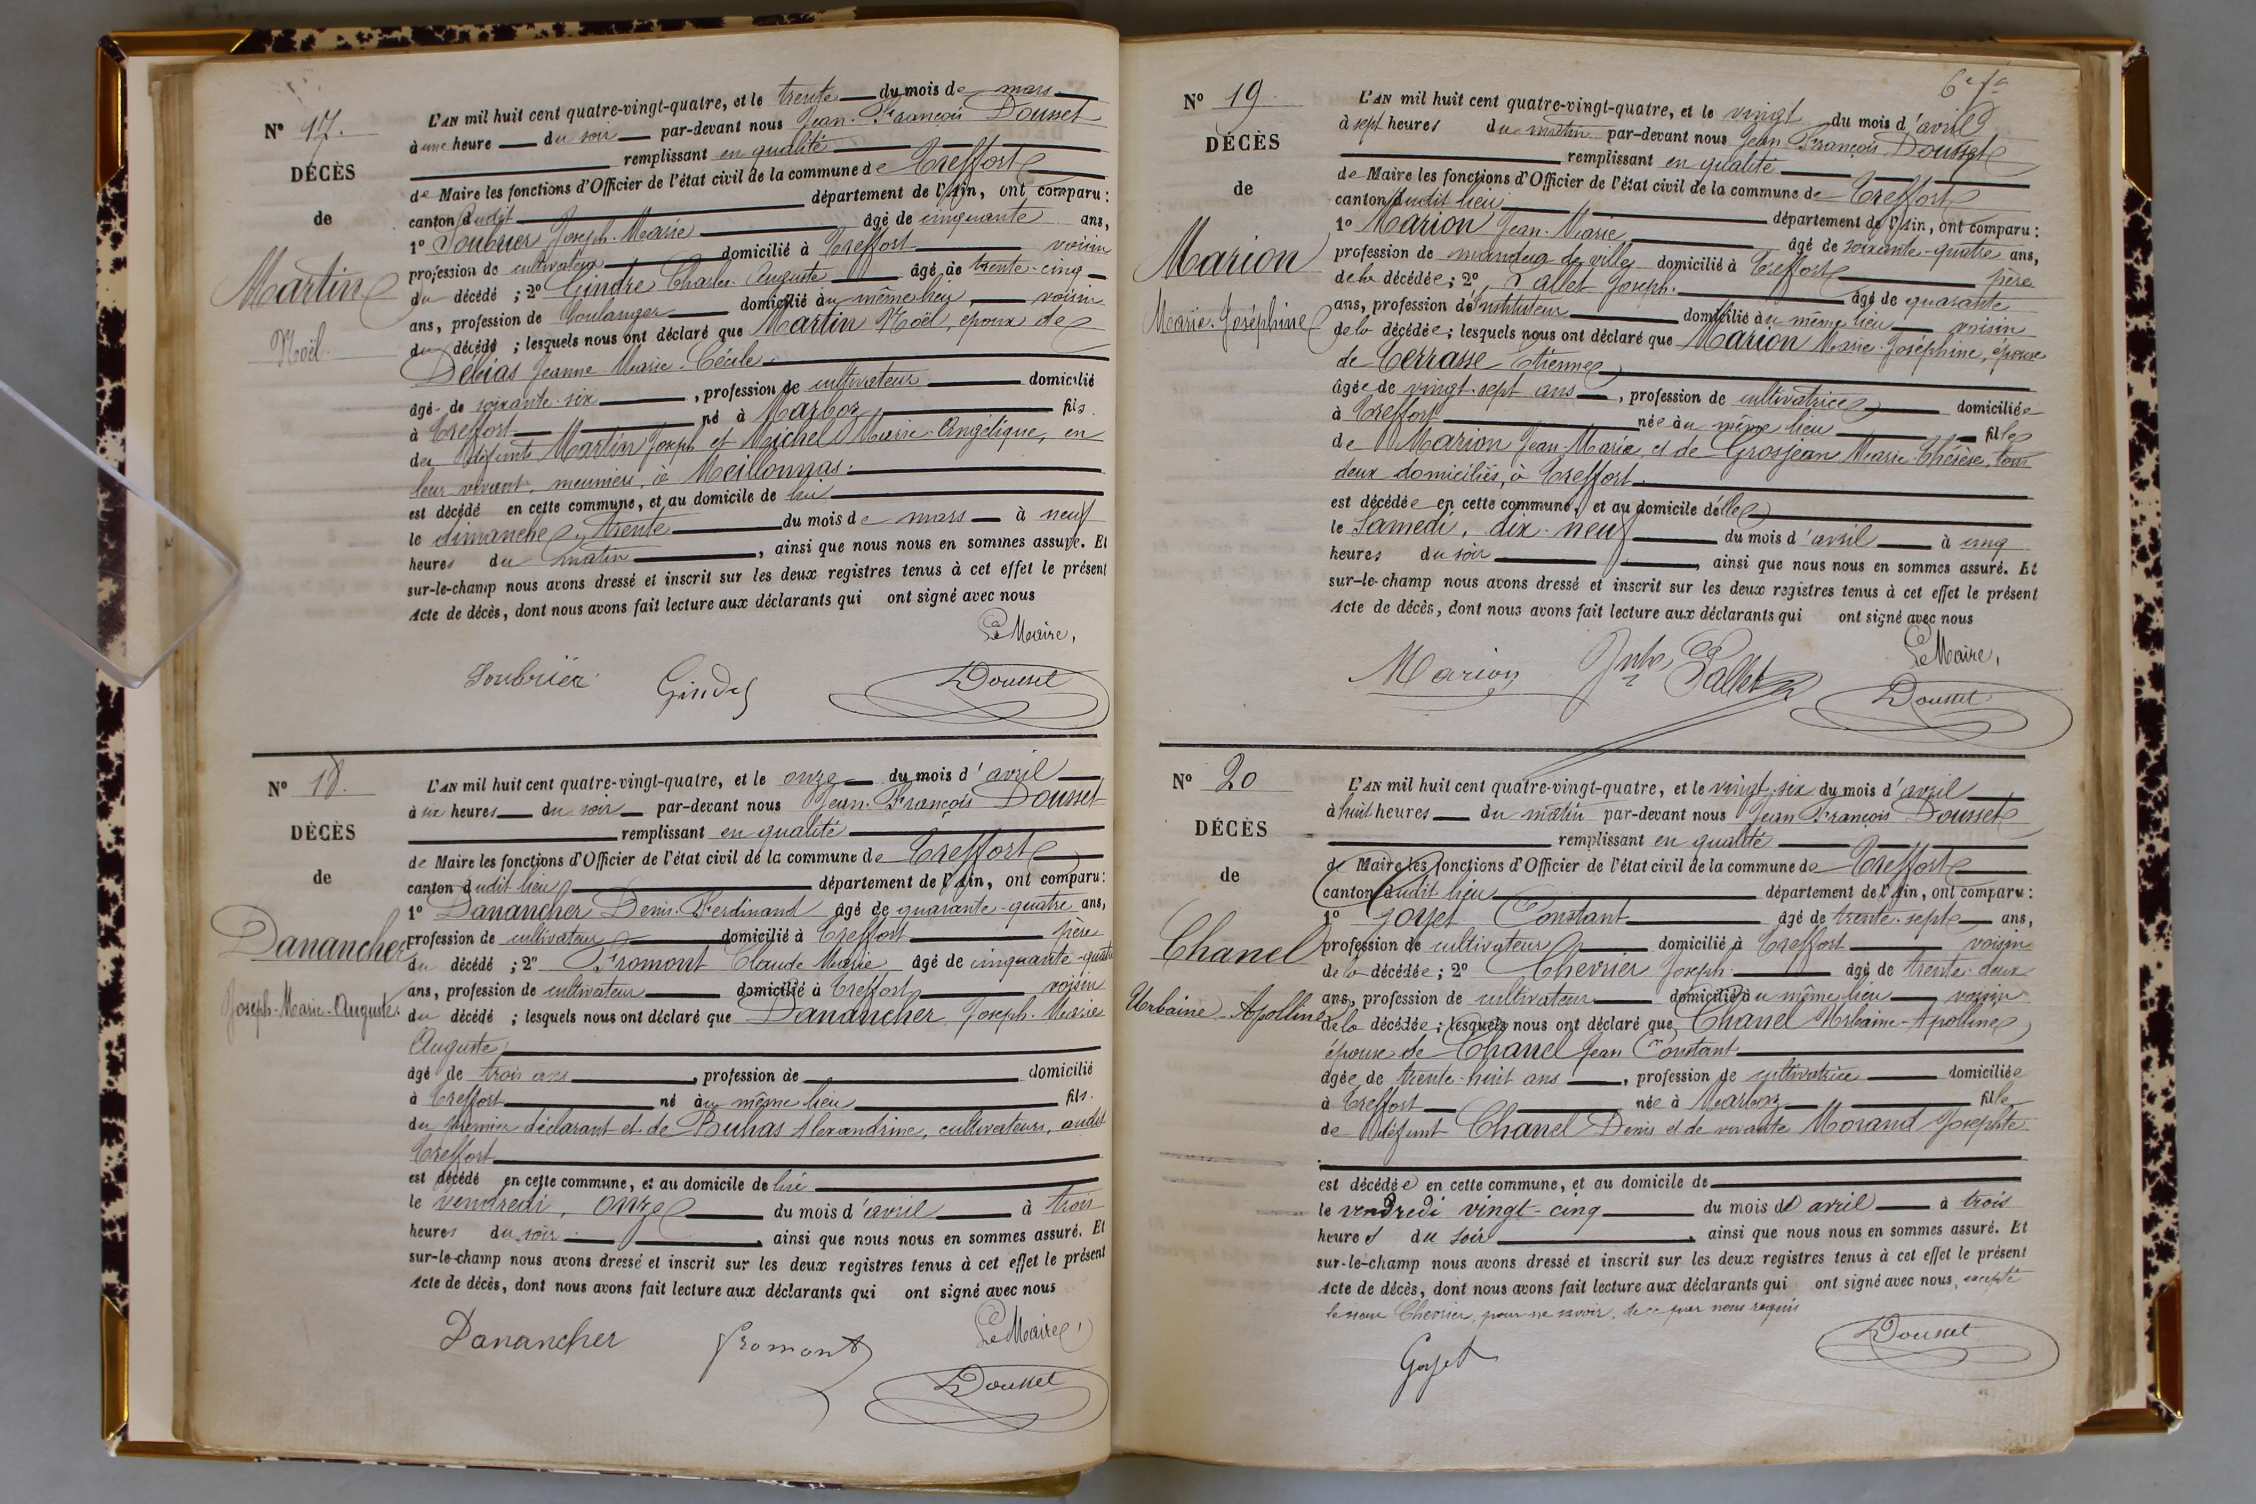 N° 17.
DÉCÈS
de
Martin
Noël
L'AN mil huit cent quatre-vingt-quatre, et le trente du mois de mars
à une heure du soir par-devant nous Jean-François Dousset
remplissant en qualité
de Maire les fonctions d'Officier de l'état civil de la commune de Treffort
canton dudit département de l'Ain, ont comparu :
1° Soubrier Joseph-Marie âgé de cinquante ans,
profession de cultivateur domicilié à Treffort voisin
du décédé ; 2° Gindre Charles Auguste âgé de trente-cinq
ans, profession de boulanger domicilié au même lieu voisin
du décédé ; lesquels nous ont déclaré que Martin Noël, époux de
Debias Jeanne-Marie-Cécile
âgé de soixante-six, profession de cultivateur domicilié
à Treffort né à Marboz fils
des défunts Martin Joseph et Michel Marie-Angélique, en
leur vivant, meuniers, à Meillonnas.
est décédé en cette commune, et au domicile de lui
le dimanche, trente du mois de mars à neuf
heures du matin, ainsi que nous nous en sommes assuré. Et
sur-le-champ nous avons dressé et inscrit sur les deux registres tenus à cet effet le présent
Acte de décès, dont nous avons fait lecture aux déclarants qui ont signé avec nous
Le Maire,
Soubrier Dousset
N° 18.
DÉCÈS
de
Danancher
Joseph-Marie-Auguste.
L'AN mil huit cent quatre-vingt-quatre, et le onze du mois d'avril
à six heures du soir par-devant nous Jean-François Dousset
remplissant en qualité
de Maire les fonctions d'Officier de l'état civil de la commune de Treffort
canton dudit lieu département de l'Ain, ont comparu :
1° Danancher Denis-Ferdinand âgé de quarante-quatre ans,
profession de cultivateur domicilié à Treffort père
du décédé ; 2° Fromont Claude Marie âgé de cinquante-quatre
ans, profession de cultivateur domicilié à Treffort voisin
du décédé ; lesquels nous ont déclaré que Danancher Joseph-Marie
Auguste
âgé de trois ans, profession de domicilié
à Treffort né au même lieu fils
du premier déclarant et de Buhas Alexandrine, cultivateurs, audit
Treffort
est décédé en cette commune, et au domicile de lui
le vendredi, onze du mois d'avril à trois
heures du soir, ainsi que nous nous en sommes assuré. Et
sur-le-champ nous avons dressé et inscrit sur les deux registres tenus à cet effet le présent
Acte de décès, dont nous avons fait lecture aux déclarants qui ont signé avec nous
Le Maire,
Danancher Fromont
Dousset
N° 19.
DÉCÈS
de
Marion
Marie-Joséphine
L'AN mil huit cent quatre-vingt-quatre, et le vingt du mois d'avril
à sept heures du matin par-devant nous Jean François Dousset
remplissant en qualité
de Maire les fonctions d'Officier de l'état civil de la commune de Treffort
canton dudit lieu département de l'Ain, ont comparu :
1° Marion Jean-Marie âgé de soixante-quatre ans,
profession de de ville domicilié à Treffort père
de la décédée ; 2° Pallet Joseph. âgé de quarante
ans, profession d'instituteur domicilié au même lieu voisin
de la décédée ; lesquels nous ont déclaré que Marion Marie-Joséphine, épouse
de Terrasse Etienne
âgée de vingt-sept ans, profession de cultivatrice domiciliée
à Treffort née au même lieu fille
de Marion Jean-Marie et de Grosjean Marie-Thérèse, tous
deux domiciliés, à Treffort.
est décédée en cette commune, et au domicile d'elle
le Samedi, dix-neuf du mois d'avril à cinq
heures du soir, ainsi que nous nous en sommes assuré. Et
sur-le-champ nous avons dressé et inscrit sur les deux registres tenus à cet effet le présent
Acte de décès, dont nous avons fait lecture aux déclarants qui ont signé avec nous
Le Maire,
Marion Pallet Dousset
N° 20
DÉCÈS
de
Chanel
Urbaine-Apolline
L'AN mil huit cent quatre-vingt-quatre, et le vingt-six du mois d'avril
à huit heures du matin par-devant nous Jean François Dousset
remplissant en qualité
de Maire les fonctions d'Officier de l'état civil de la commune de Treffort
canton dudit lieu département de l'Ain, ont comparu :
1° Goyet Constant âgé de trente-sept ans,
profession de cultivateur domicilié à Treffort voisin
de la décédée ; 2° Chevrier Joseph âgé de trente-deux
ans, profession de cultivateur domicilié au même lieu voisin
de la décédée ; lesquels nous ont déclaré que Chanel Urbaine-Apolline
épouse de Chanel Jean Constant
âgée de trente-huit ans, profession de cultivatrice domiciliée
à Treffort née à Marboz fille
de défunt Chanel Denis et de vivante Morand Josephte
est décédée en cette commune, et au domicile de
le vendredi vingt-cinq du mois d'avril à trois
heures du soir, ainsi que nous nous en sommes assuré. Et
sur-le-champ nous avons dressé et inscrit sur les deux registres tenus à cet effet le présent
Acte de décès, dont nous avons fait lecture aux déclarants qui ont signé avec nous, excepté
le sieur Chevrier, pour ne savoir, de ce par nous requis
Dousset
Goyet